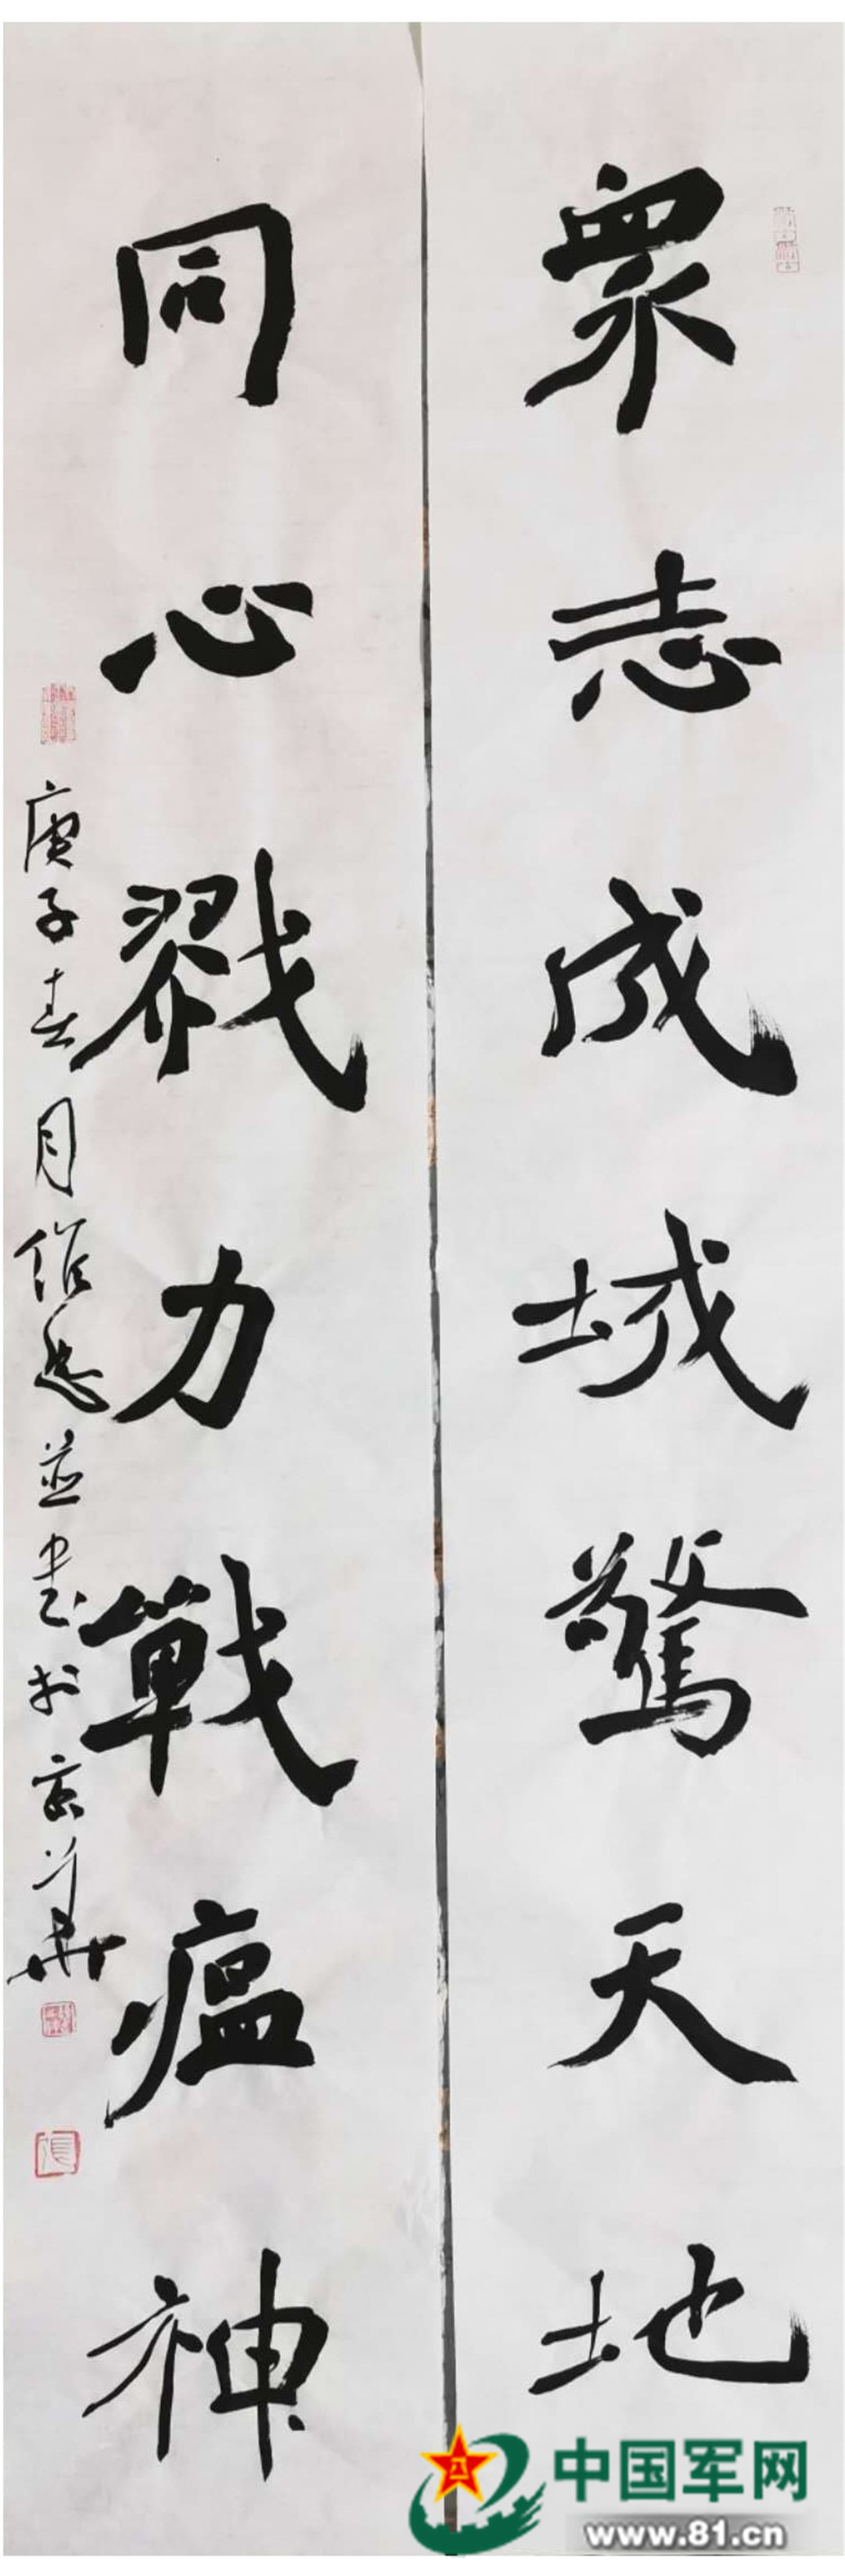 眾志成城驚天地
同心戮力戰瘟神
庚子春月作
並書於京
華
中国军网
www.81.cn